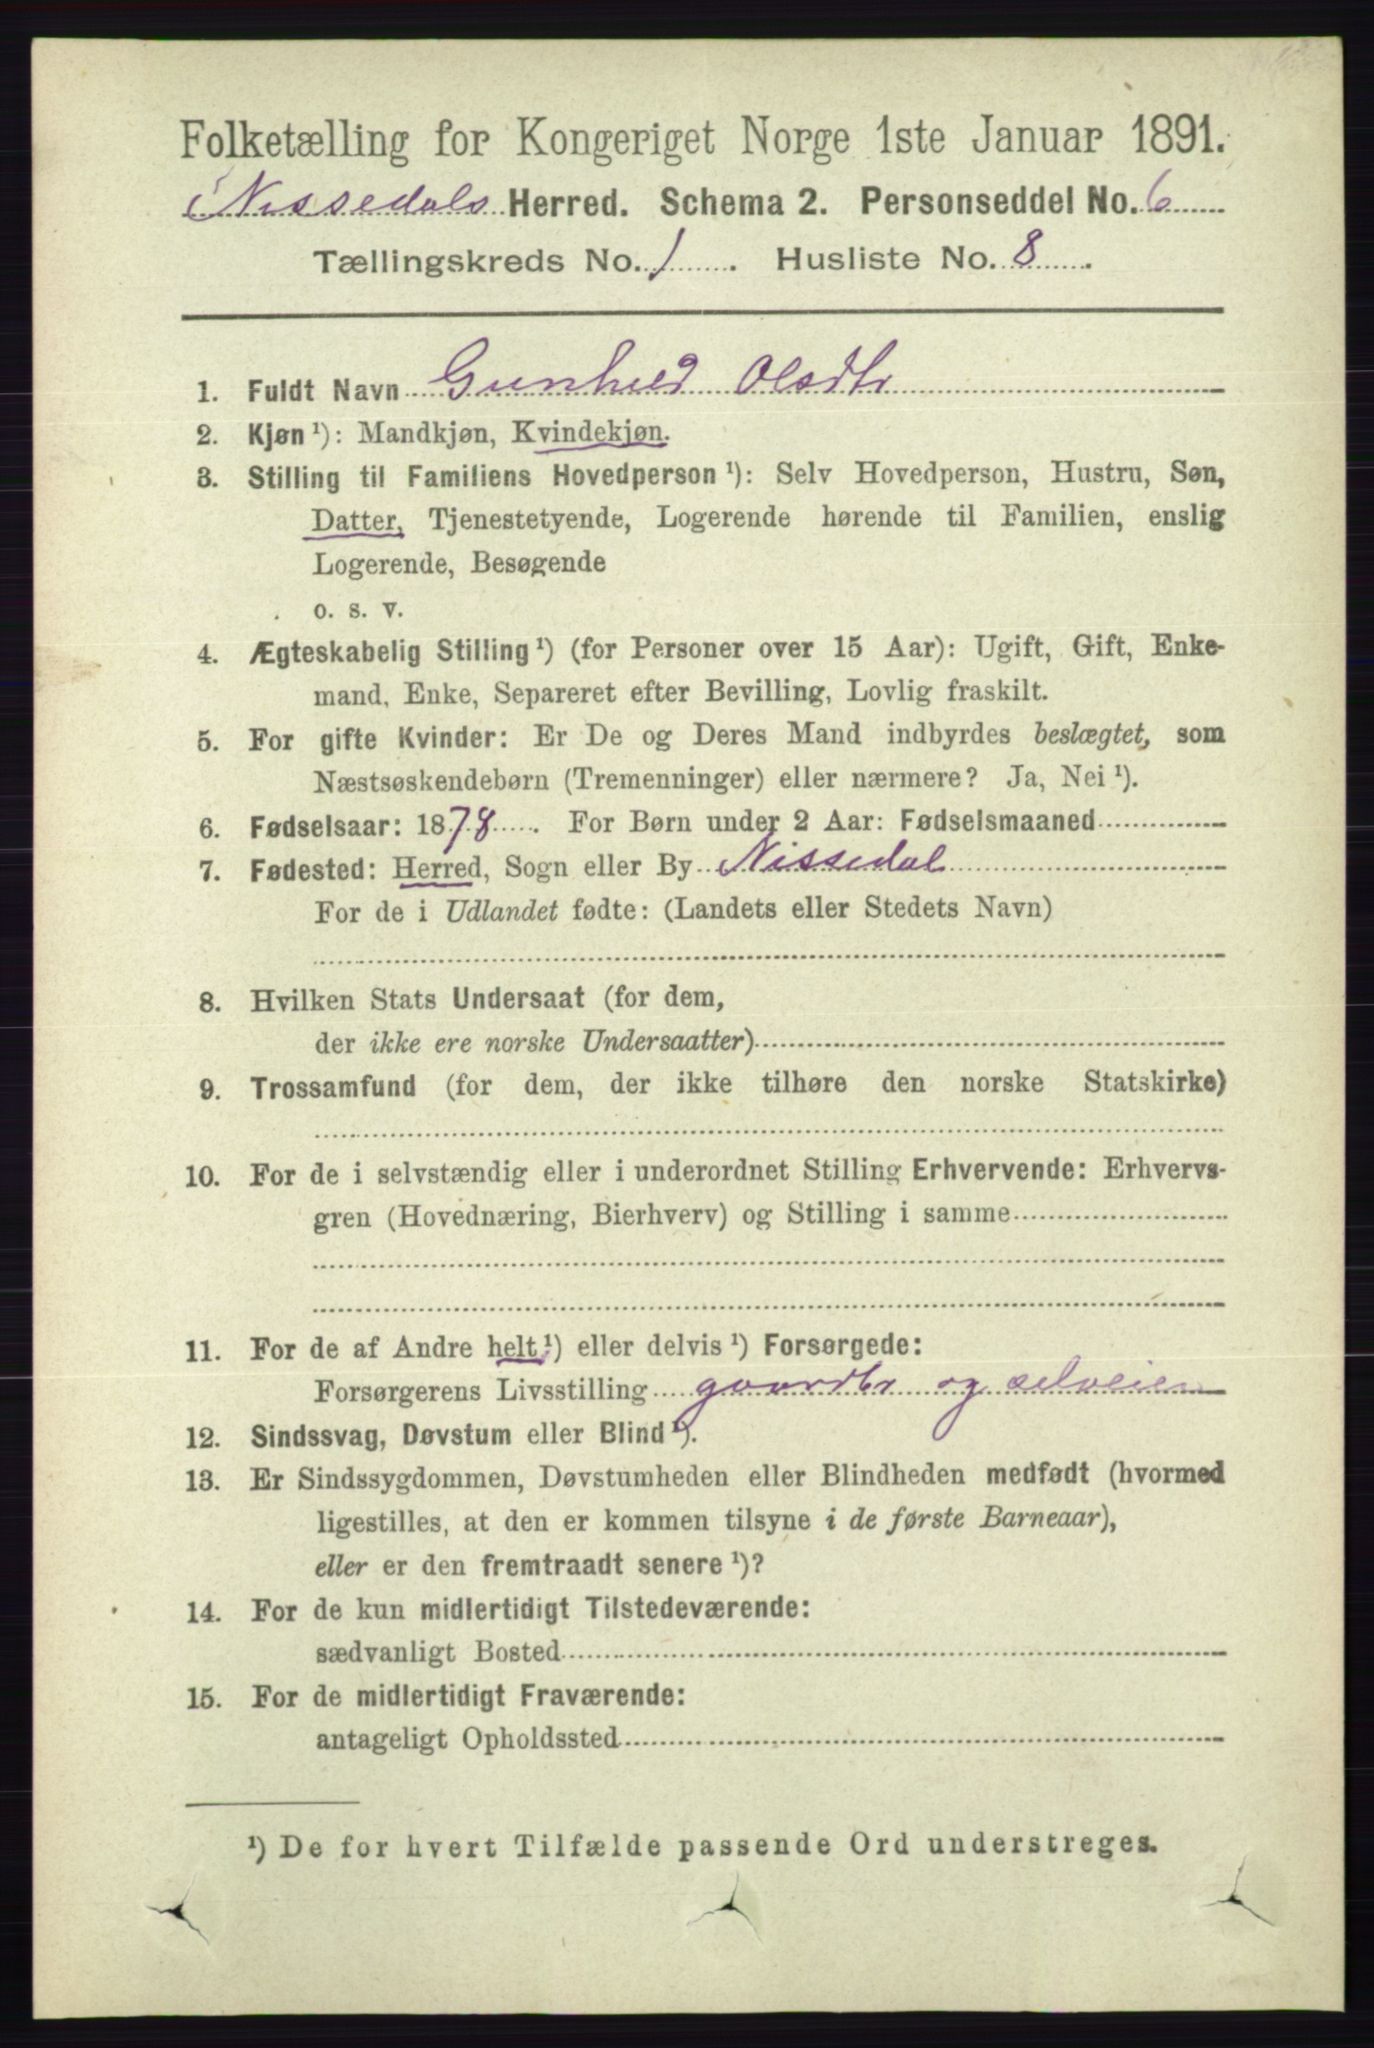 Folketælling for Kongeriget Norge 1ste Januar 1891.
Nissedals Herred. Schema 2. Personseddel No. 6
Tællingskreds No. 1. Husliste No. 8.
1. Fuldt Navn Gunhild Olsdtr
2. Kjøn ¹): Mandkjøn, Kvindekjøn.
3. Stilling til Familiens Hovedperson ¹): Selv Hovedperson, Hustru, Søn,
Datter, Tjenestetyende, Logerende hørende til Familien, enslig
Logerende, Besøgende
o. s. v.
4. Ægteskabelig Stilling ¹) (for Personer over 15 Aar): Ugift, Gift, Enke-
mand, Enke, Separeret efter Bevilling, Lovlig fraskilt.
5. For gifte Kvinder: Er De og Deres Mand indbyrdes beslægtet, som
Næstsøskendebørn (Tremenninger) eller nærmere? Ja, Nei ¹).
6. Fødselsaar: 1878. For Børn under 2 Aar: Fødselsmaaned
7. Fødested: Herred, Sogn eller By Nissedal
For de i Udlandet fødte: (Landets eller Stedets Navn)
8. Hvilken Stats Undersaat (for dem,
der ikke ere norske Undersaatter)
9. Trossamfund (for dem, der ikke tilhøre den norske Statskirke)
10. For de i selvstændig eller i underordnet Stilling Erhvervende: Erhvervs-
gren (Hovednæring, Bierhverv) og Stilling i samme
11. For de af Andre helt ¹) eller delvis ¹) Forsørgede:
Forsørgerens Livsstilling gaardbr og selveier
12. Sindssvag, Døvstum eller Blind ¹).
13. Er Sindssygdommen, Døvstumheden eller Blindheden medfødt (hvormed
ligestilles, at den er kommen tilsyne i de første Barneaar),
eller er den fremtraadt senere ¹)?
14. For de kun midlertidigt Tilstedeværende:
sædvanligt Bosted
15. For de midlertidigt Fraværende:
antageligt Opholdssted
¹) De for hvert Tilfælde passende Ord understreges.